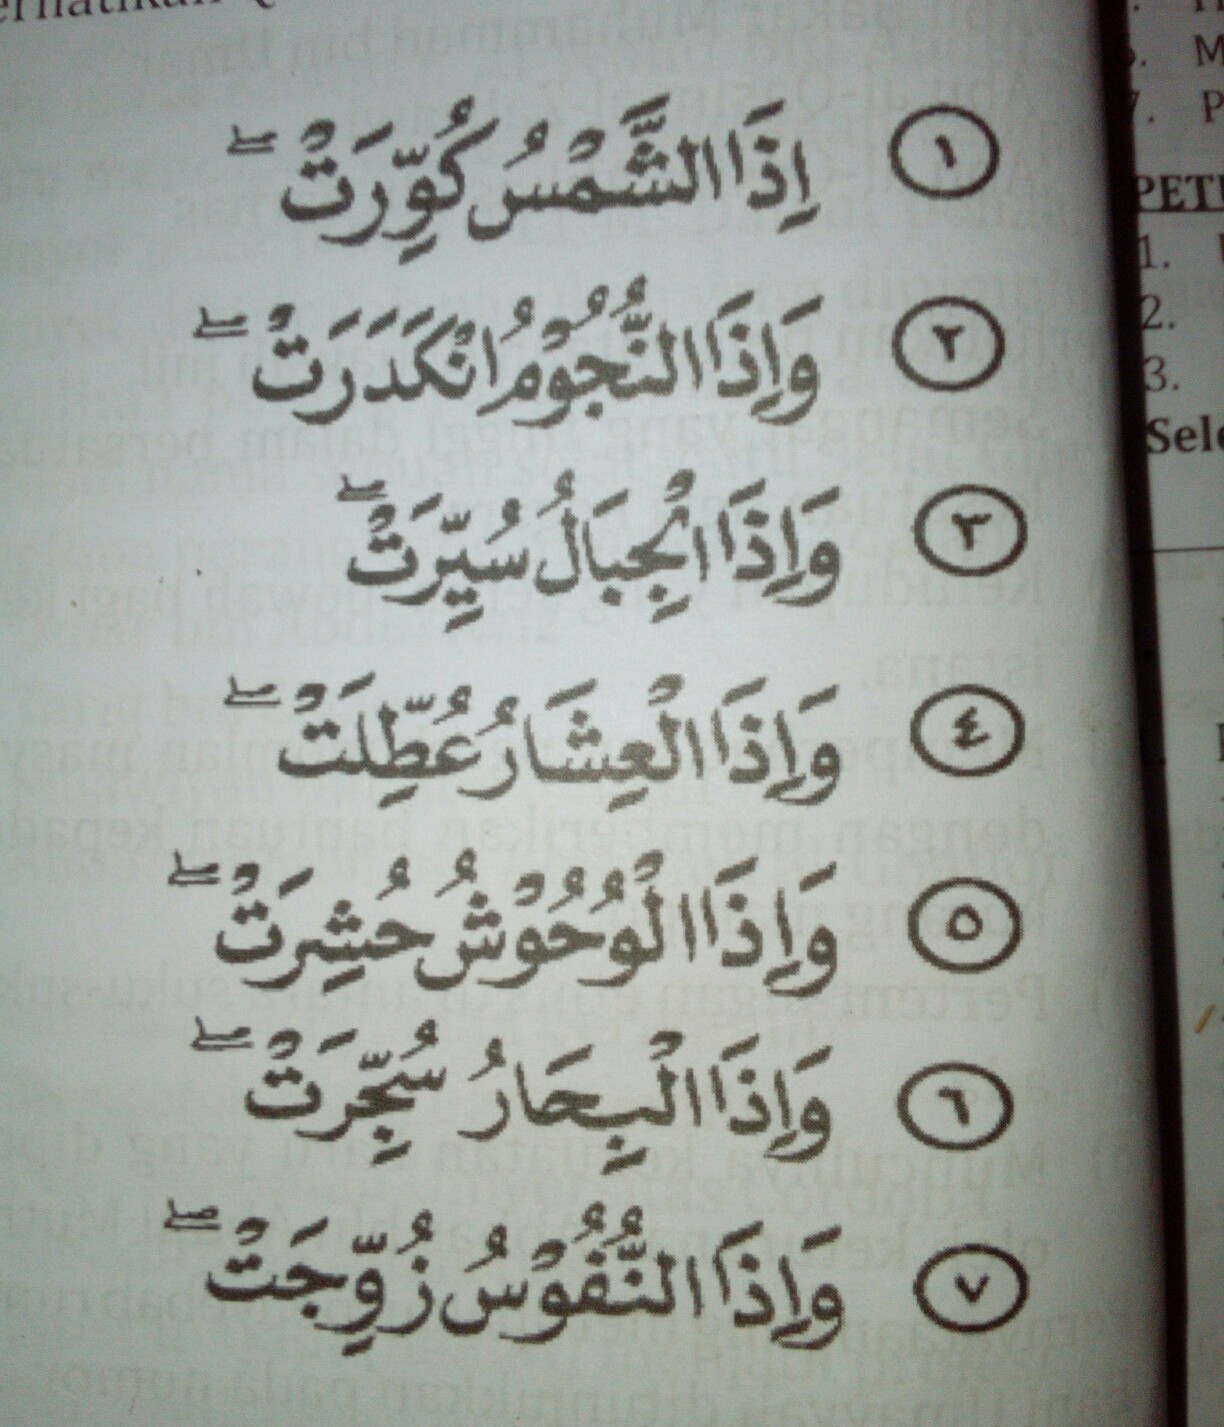 ١ اِذَا الشَّمْسُ كُوِّرَتْۖ
٢ وَاِذَا النُّجُوْمُ انْكَدَرَتْۖ
٣ وَاِذَا الْجِبَالُ سُيِّرَتْۖ
٤ وَاِذَا الْعِشَارُ عُطِّلَتْۖ
٥ وَاِذَا الْوُحُوْشُ حُشِرَتْۖ
٦ وَاِذَا الْبِحَارُ سُجِّرَتْۖ
٧ وَاِذَا النُّفُوْسُ زُوِّجَتْۖ
7. P
1.
2.
3.